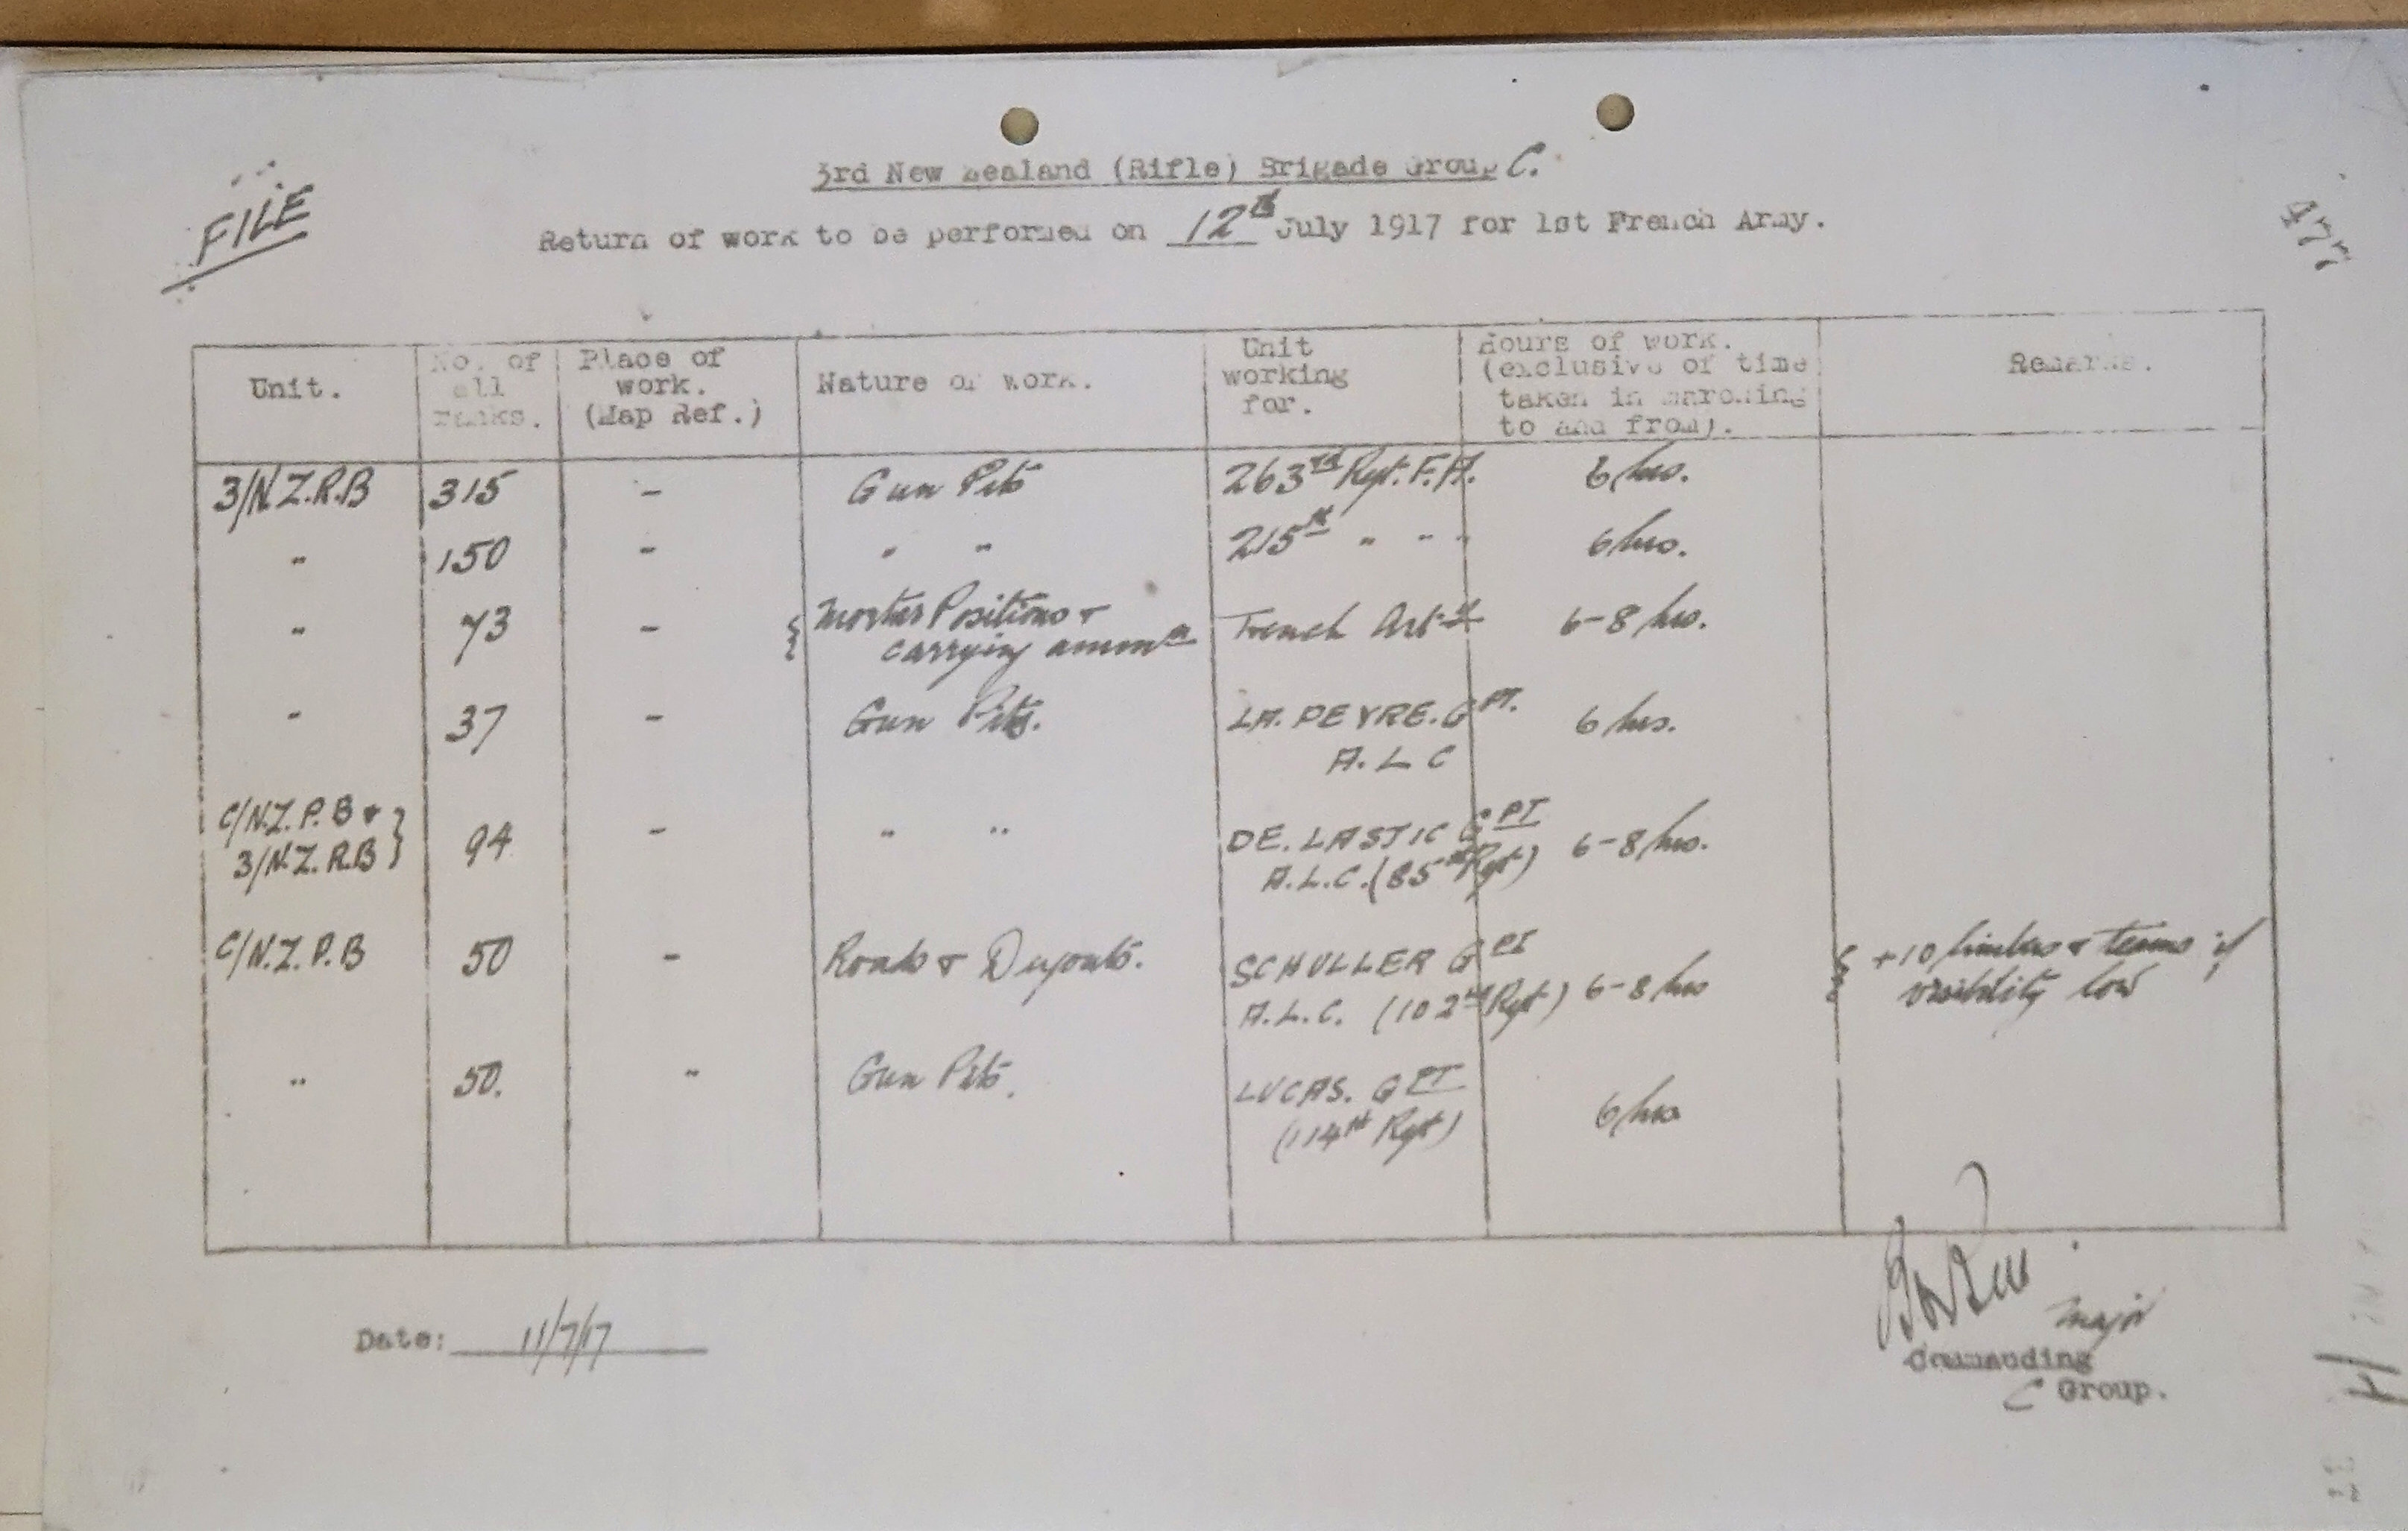 3rd New Zealand (Rifle) Brigade Group C.
FILE
477
Return of work to be performed on 12th July 1917 for 1st French Army.
Unit.
No. of
all
ranks.
Place of
work.
(Map Ref.)
Nature of work.
Unit
working
for.
Hours of work.
(exclusive of time
taken in marching
to and from).
Remarks.
3/N.Z.R.B 315 - Gun Pits 263rd Rgt. F.A. 6 hrs.
" 150 - " " 215th " " " 6 hrs.
" 73 - { Mortar Positions & Trench Arty 6-8 hrs.
carrying ammn
" 37 - Gun Pits. LA. PEYRE. GPT. 6 hrs.
A. L C
C/N.Z. P. B & } 94 - " " DE. LASTIC GPT 6-8 hrs.
3/N.Z. R.B A.L.C. (85th Rgt)
C/N.Z. P. B 50 - Roads & Dugouts. SCHULLER GPT 6-8 hrs { +10 limbers & teams if
A.L.C. (102nd Rgt) visibility low
" 50. " Gun Pits. LUCAS. GPT 6 hrs
(114th Rgt)
Date: 11/7/17
Major
Commanding
C Group.